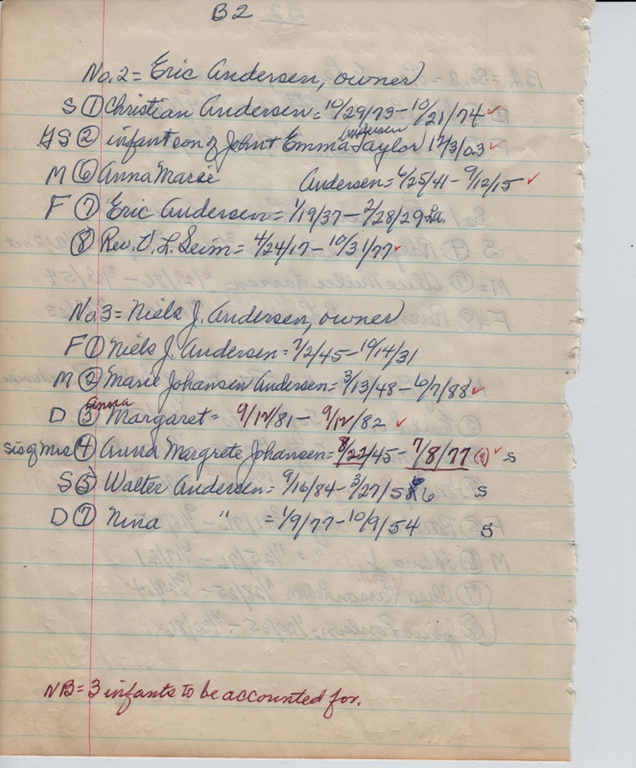 B2
No. 2 = Eric Andersen, owner
S ① Christian Andersen = 10/29/73 - 10/21/74 ✓
GS ② infant son of John + Emma Andersen Taylor 12/3/03 ✓
M ⑥ Anna Marie Andersen = 6/25/41 - 9/12/15 ✓
F ⑦ Eric Andersen = 1/19/37 - 2/28/29
⑧ Rev. O. L. Seim = 4/24/17 - 10/31/77 ✓
No. 3 = Niels J. Andersen, owner
F ① Niels J. Andersen = 7/2/45 - 10/14/31
M ② Marie Johansen Andersen = 3/13/48 - 6/7/88 ✓
D ③ Anna Margaret = 9/12/81 - 9/12/82 ✓
sis of Mrs ④ Anna Margrete Johansen = 8/22/45 - 7/8/77 ✓ S
S ⑤ Walter Andersen = 9/16/84 - 3/27/56 S
D ⑦ Nina " = 1/9/77 - 10/9/54 S
NB = 3 infants to be accounted for.